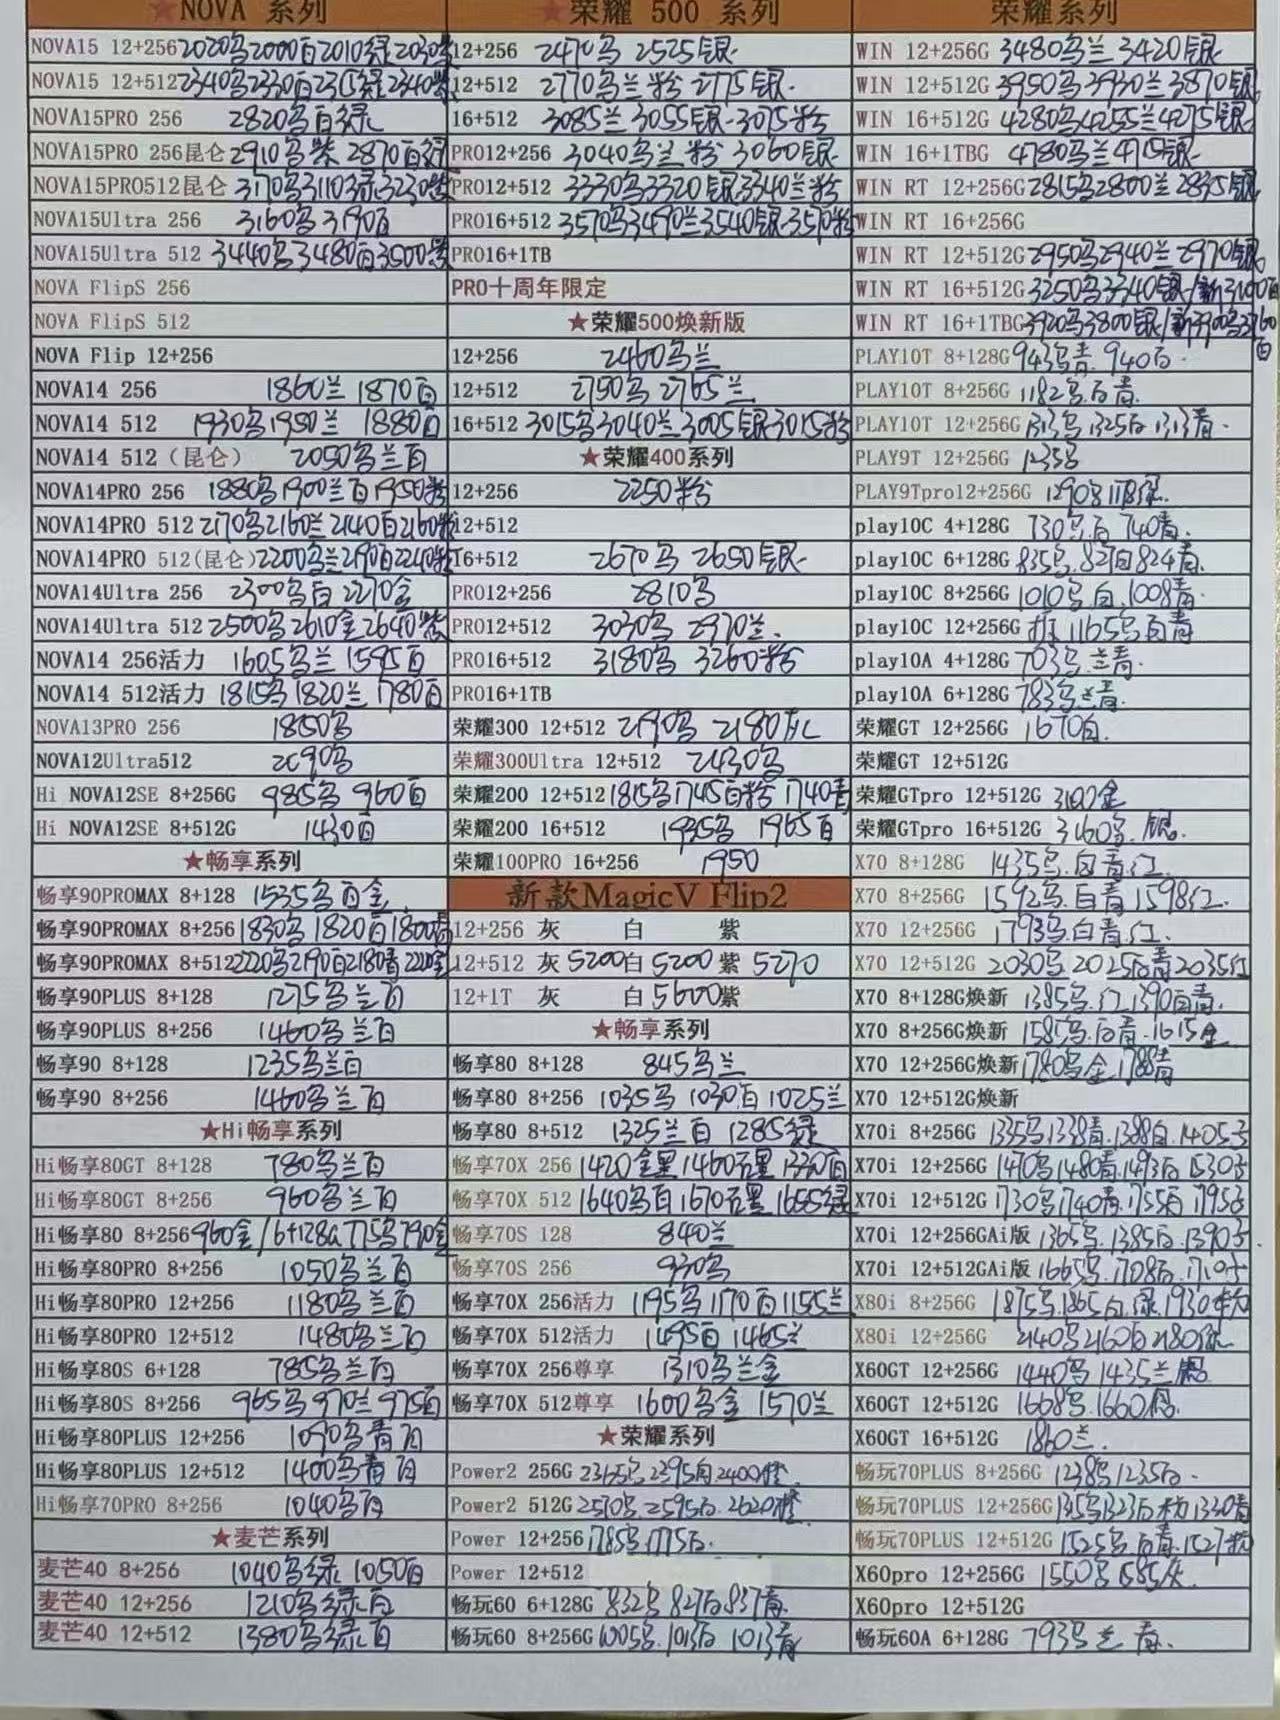 ★NOVA 系列
NOVA15 12+256 2020乌2000百2010绿2030紫
NOVA15 12+512 2340乌2330百2315绿2340紫
NOVA15PRO 256 2820乌百绿
NOVA15PRO 256昆仑 2910乌紫 2870百绿
NOVA15PRO512昆仑 3170乌3110绿3230紫
NOVA15Ultra 256 3160乌3190百
NOVA15Ultra 512 3440乌3480百3500紫
NOVA FlipS 256
NOVA FlipS 512
NOVA Flip 12+256
NOVA14 256 1860兰 1870百
NOVA14 512 1930乌1950兰 1880百
NOVA14 512（昆仑） 2050乌兰百
NOVA14PRO 256 1880乌1900兰百1950粉
NOVA14PRO 512 2170乌2160兰2140百2160粉
NOVA14PRO 512(昆仑) 2200乌兰2190百2240粉
NOVA14Ultra 256 2300乌百2270金
NOVA14Ultra 512 2500乌2610金2640紫
NOVA14 256活力 1605乌兰 1595百
NOVA14 512活力 1815乌1820兰 1780百
NOVA13PRO 256 1850乌
NOVA12Ultra512 2090乌
Hi NOVA12SE 8+256G 985乌 960百
Hi NOVA12SE 8+512G 1430百
★畅享系列
畅享90PROMAX 8+128 1535乌百金
畅享90PROMAX 8+256 1830乌1820百1800青
畅享90PROMAX 8+512 2220乌2190百2180青2220金
畅享90PLUS 8+128 1275乌兰百
畅享90PLUS 8+256 1460乌兰百
畅享90 8+128 1235乌兰百
畅享90 8+256 1460乌兰百
★Hi畅享系列
Hi畅享80GT 8+128 780乌兰百
Hi畅享80GT 8+256 960乌兰百
Hi畅享80 8+256 960金/6+128G 775乌790金
Hi畅享80PRO 8+256 1050乌兰百
Hi畅享80PRO 12+256 1180乌兰百
Hi畅享80PRO 12+512 1480乌兰百
Hi畅享80S 6+128 785乌兰百
Hi畅享80S 8+256 965乌970兰975百
Hi畅享80PLUS 12+256 1090乌青百
Hi畅享80PLUS 12+512 1400乌青百
Hi畅享70PRO 8+256 1040乌百
★麦芒系列
麦芒40 8+256 1040乌绿1050百
麦芒40 12+256 1210乌绿百
麦芒40 12+512 1380乌绿百
★荣耀 500 系列
12+256 2470乌 2525银
12+512 2770乌兰粉2775银
16+512 3085兰3055银3075粉
PRO12+256 3040乌兰粉3060银
PRO12+512 3330乌3320银3340兰粉
PRO16+512 3570乌3490兰3540银3570粉
PRO16+1TB
PRO十周年限定
★荣耀500焕新版
12+256 2460乌兰
12+512 2750乌2765兰
16+512 3015乌3040兰3005银3015粉
★荣耀400系列
12+256 2250粉
12+512
16+512 2670乌 2650银
PRO12+256 2810乌
PRO12+512 3030乌2970兰
PRO16+512 3180乌 3260粉
PRO16+1TB
荣耀300 12+512 2190乌 2180
荣耀300Ultra 12+512 2430乌
荣耀200 12+512 1815乌1745百粉1740青
荣耀200 16+512 1935乌 1965百
荣耀100PRO 16+256 1950
新款MagicV Flip2
12+256 灰 白 紫
12+512 灰 5200白 5200 紫 5270
12+1T 灰 白 5600紫
★畅享系列
畅享80 8+128 845乌兰
畅享80 8+256 1035乌1030百1025兰
畅享80 8+512 1325兰百1285绿
畅享70X 256 1420金黑1460石墨1330百
畅享70X 512 1640乌百1670石墨1655绿
畅享70S 128 840兰
畅享70S 256 930乌
畅享70X 256活力 1195乌1170百1155兰
畅享70X 512活力 1495百1465兰
畅享70X 256尊享 1310乌兰金
畅享70X 512尊享 1600乌金1570兰
★荣耀系列
Power2 256G 2365乌2395白2400橙
Power2 512G 2570乌2595白2620橙
Power 12+256 1785乌1775白
Power 12+512
畅玩60 6+128G 832乌827白837青
畅玩60 8+256G 1005乌1013白1013青
荣耀系列
WIN 12+256G 3480乌兰3420银
WIN 12+512G 3950乌3930兰3870银
WIN 16+512G 4280乌4255兰4275银
WIN 16+1TBG 4780乌兰4715银
WIN RT 12+256G 2815乌2800兰2835银
WIN RT 16+256G
WIN RT 12+512G 2950乌2940兰2970银
WIN RT 16+512G 3250乌3340银/新3100百
WIN RT 16+1TBG 3920乌3800银/新3900乌3760百
PLAY10T 8+128G 943乌青 940百
PLAY10T 8+256G 1182乌百青
PLAY10T 12+256G 1313乌1325百1313青
PLAY9T 12+256G 1235乌
PLAY9Tpro12+256G 1290乌1178绿
play10C 4+128G 730乌百740青
play10C 6+128G 835乌827白824青
play10C 8+256G 1010乌白1008青
play10C 12+256G 1165乌百青
play10A 4+128G 703乌兰青
play10A 6+128G 783乌兰青
荣耀GT 12+256G 1670白
荣耀GT 12+512G
荣耀GTpro 12+512G 3100金
荣耀GTpro 16+512G 3460乌银
X70 8+128G 1435乌白青红
X70 8+256G 1592乌白青1598红
X70 12+256G 1793乌白青红
X70 12+512G 2030乌2025白青2035红
X70 8+128G焕新 1385乌红1390百青
X70 8+256G焕新 1585乌百青1615金
X70 12+256G焕新 1780乌金1788青
X70 12+512G焕新
X70i 8+256G 1335乌1338青1388白1405
X70i 12+256G 1470乌1480青1493白1530
X70i 12+512G 1730乌1740青1755白1795
X70i 12+256GAi版 1365乌1385白1390
X70i 12+512GAi版 1665乌1708白1710
X80i 8+256G 1875乌1865白绿1930粉
X80i 12+256G 2140乌2160白2180绿
X60GT 12+256G 1440乌1435兰银
X60GT 12+512G 1668乌1660银
X60GT 16+512G 1860兰
畅玩70PLUS 8+256G 1238乌1235白
畅玩70PLUS 12+256G 1315乌1323白粉1320青
畅玩70PLUS 12+512G 1525乌白青1527粉
X60pro 12+256G 1550乌1585灰
X60pro 12+512G
畅玩60A 6+128G 793乌兰青